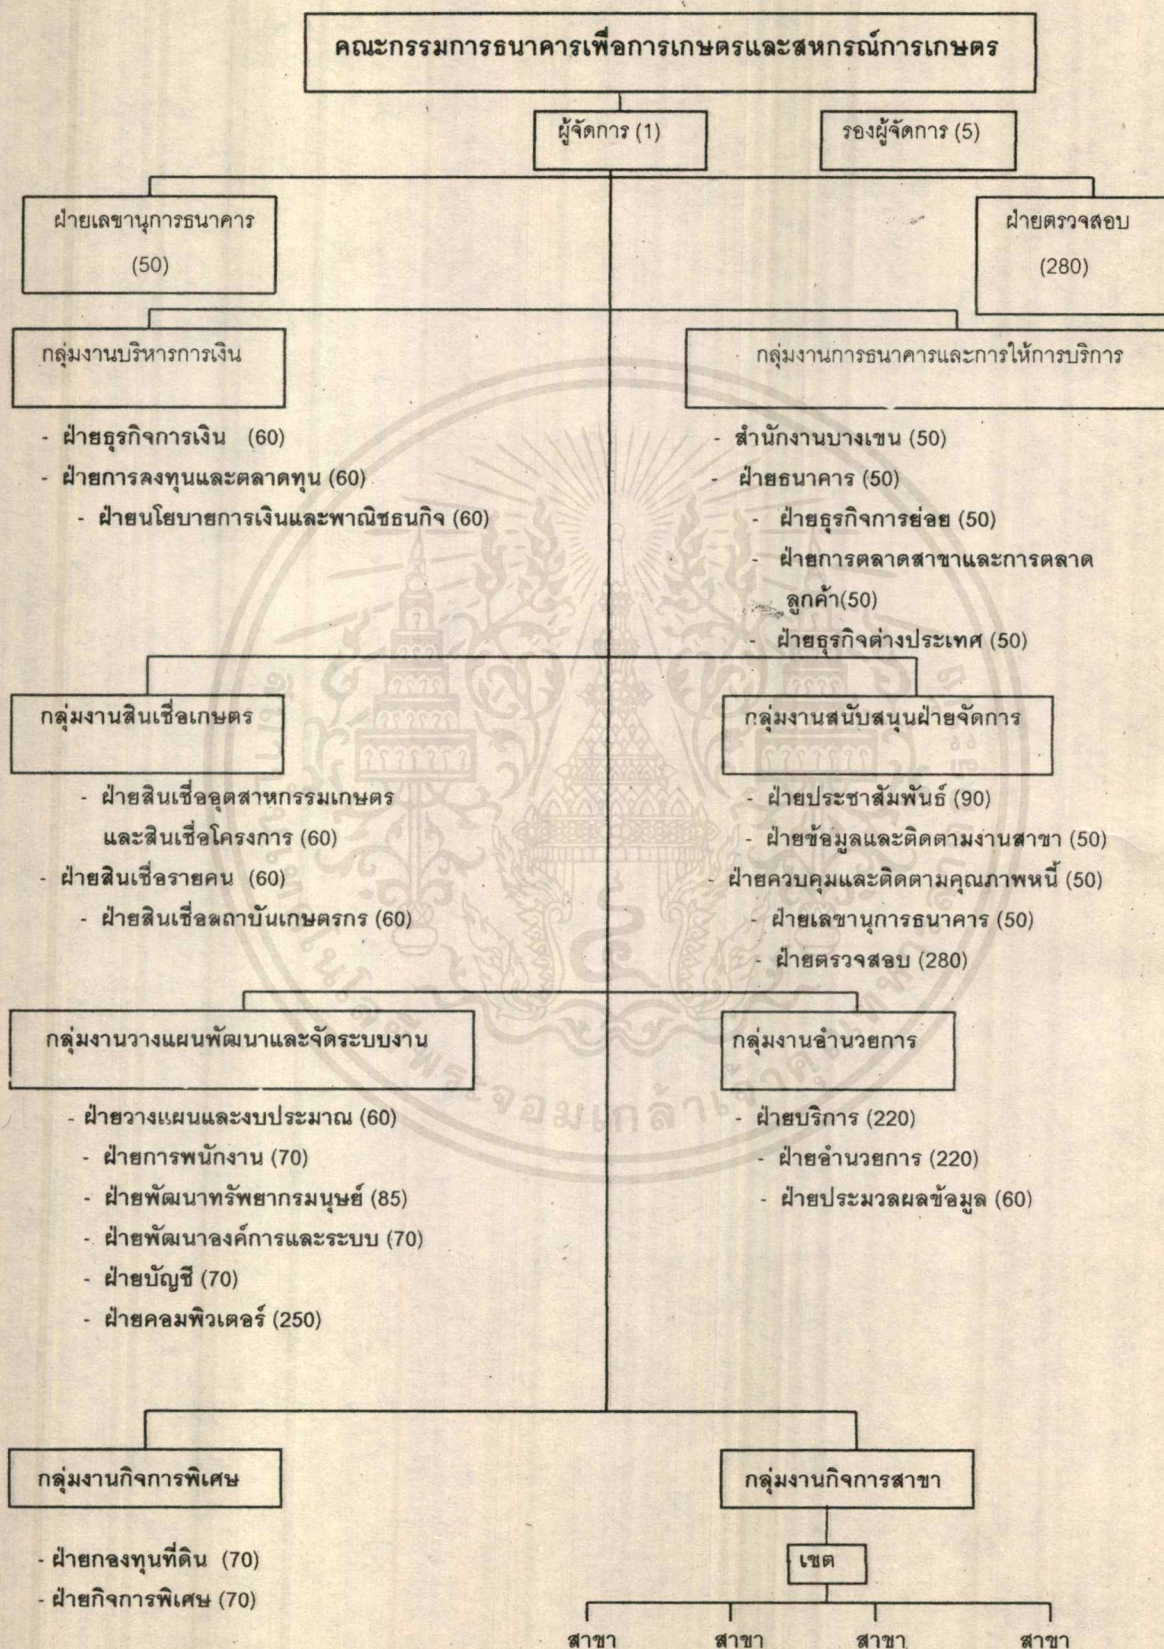 คณะกรรมการธนาคารเพื่อการเกษตรและสหกรณ์การเกษตร
ผู้จัดการ (1)
รองผู้จัดการ (5)
ฝ่ายเลขานุการธนาคาร
(50)
ฝ่ายตรวจสอบ
(280)
กลุ่มงานบริหารการเงิน
- ฝ่ายธุรกิจการเงิน (60)
- ฝ่ายการลงทุนและตลาดทุน (60)
- ฝ่ายนโยบายการเงินและพาณิชธนกิจ (60)
กลุ่มงานการธนาคารและการให้การบริการ
- สำนักงานบางเขน (50)
- ฝ่ายธนาคาร (50)
- ฝ่ายธุรกิจการย่อย (50)
- ฝ่ายการตลาดสาขาและการตลาด
ลูกค้า(50)
- ฝ่ายธุรกิจต่างประเทศ (50)
กลุ่มงานสินเชื่อเกษตร
- ฝ่ายสินเชื่ออุตสาหกรรมเกษตร
และสินเชื่อโครงการ (60)
- ฝ่ายสินเชื่อรายคน (60)
- ฝ่ายสินเชื่อสถาบันเกษตรกร (60)
กลุ่มงานสนับสนุนฝ่ายจัดการ
- ฝ่ายประชาสัมพันธ์ (90)
- ฝ่ายข้อมูลและติดตามงานสาขา (50)
- ฝ่ายควบคุมและติดตามคุณภาพหนี้ (50)
- ฝ่ายเลขานุการธนาคาร (50)
- ฝ่ายตรวจสอบ (280)
กลุ่มงานวางแผนพัฒนาและจัดระบบงาน
- ฝ่ายวางแผนและงบประมาณ (60)
- ฝ่ายการพนักงาน (70)
- ฝ่ายพัฒนาทรัพยากรมนุษย์ (85)
- ฝ่ายพัฒนาองค์การและระบบ (70)
- ฝ่ายบัญชี (70)
- ฝ่ายคอมพิวเตอร์ (250)
กลุ่มงานอำนวยการ
- ฝ่ายบริการ (220)
- ฝ่ายอำนวยการ (220)
- ฝ่ายประมวลผลข้อมูล (60)
กลุ่มงานกิจการพิเศษ
- ฝ่ายกองทุนที่ดิน (70)
- ฝ่ายกิจการพิเศษ (70)
กลุ่มงานกิจการสาขา
เขต
สาขา สาขา สาขา สาขา